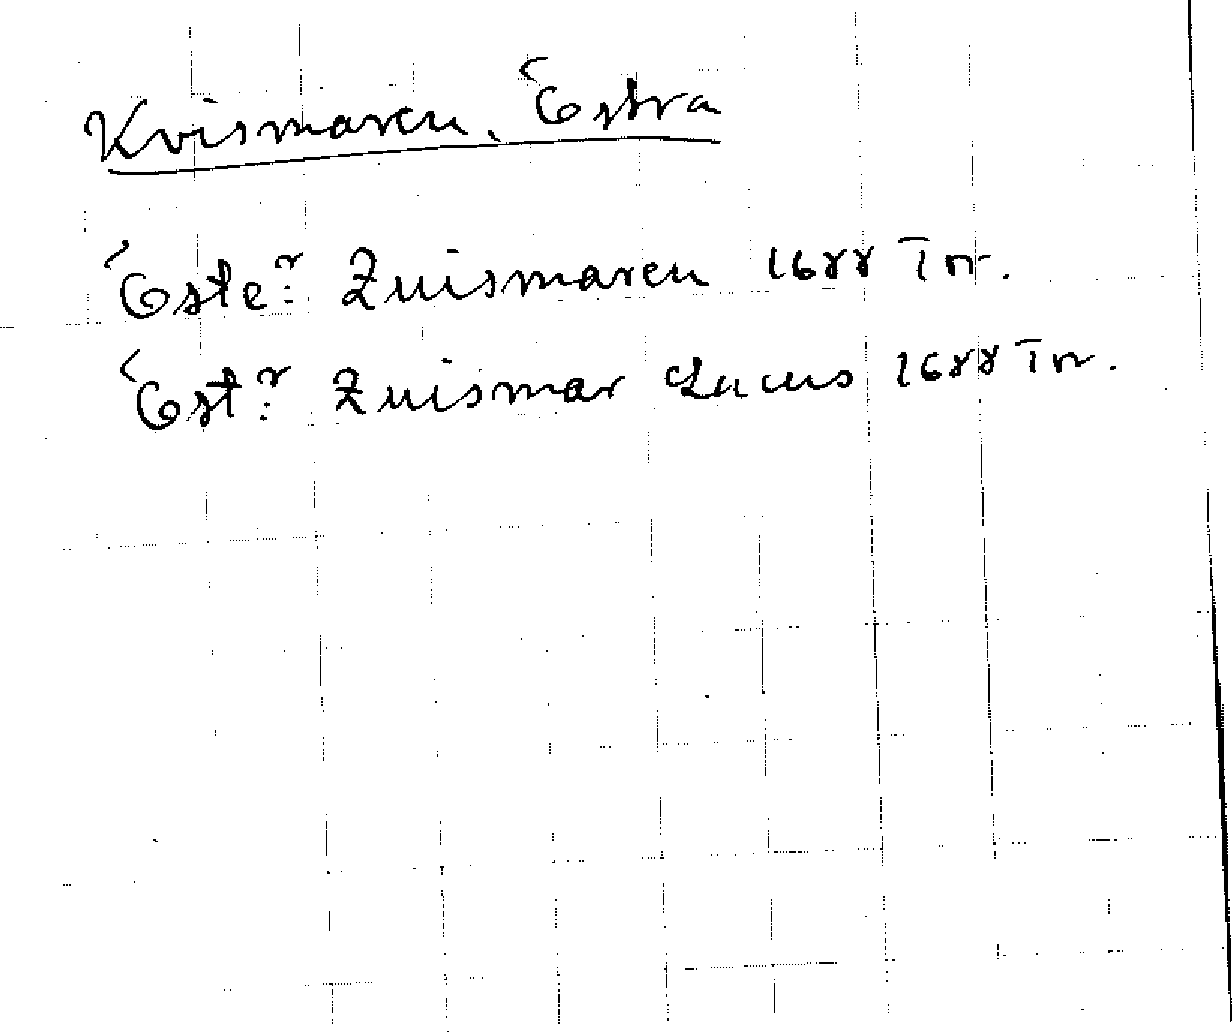 Kvismaren, Östra
Öste:r Zuismaren 1688 Tr.
Öst:r Zuismar Lacus 1688 Tr.